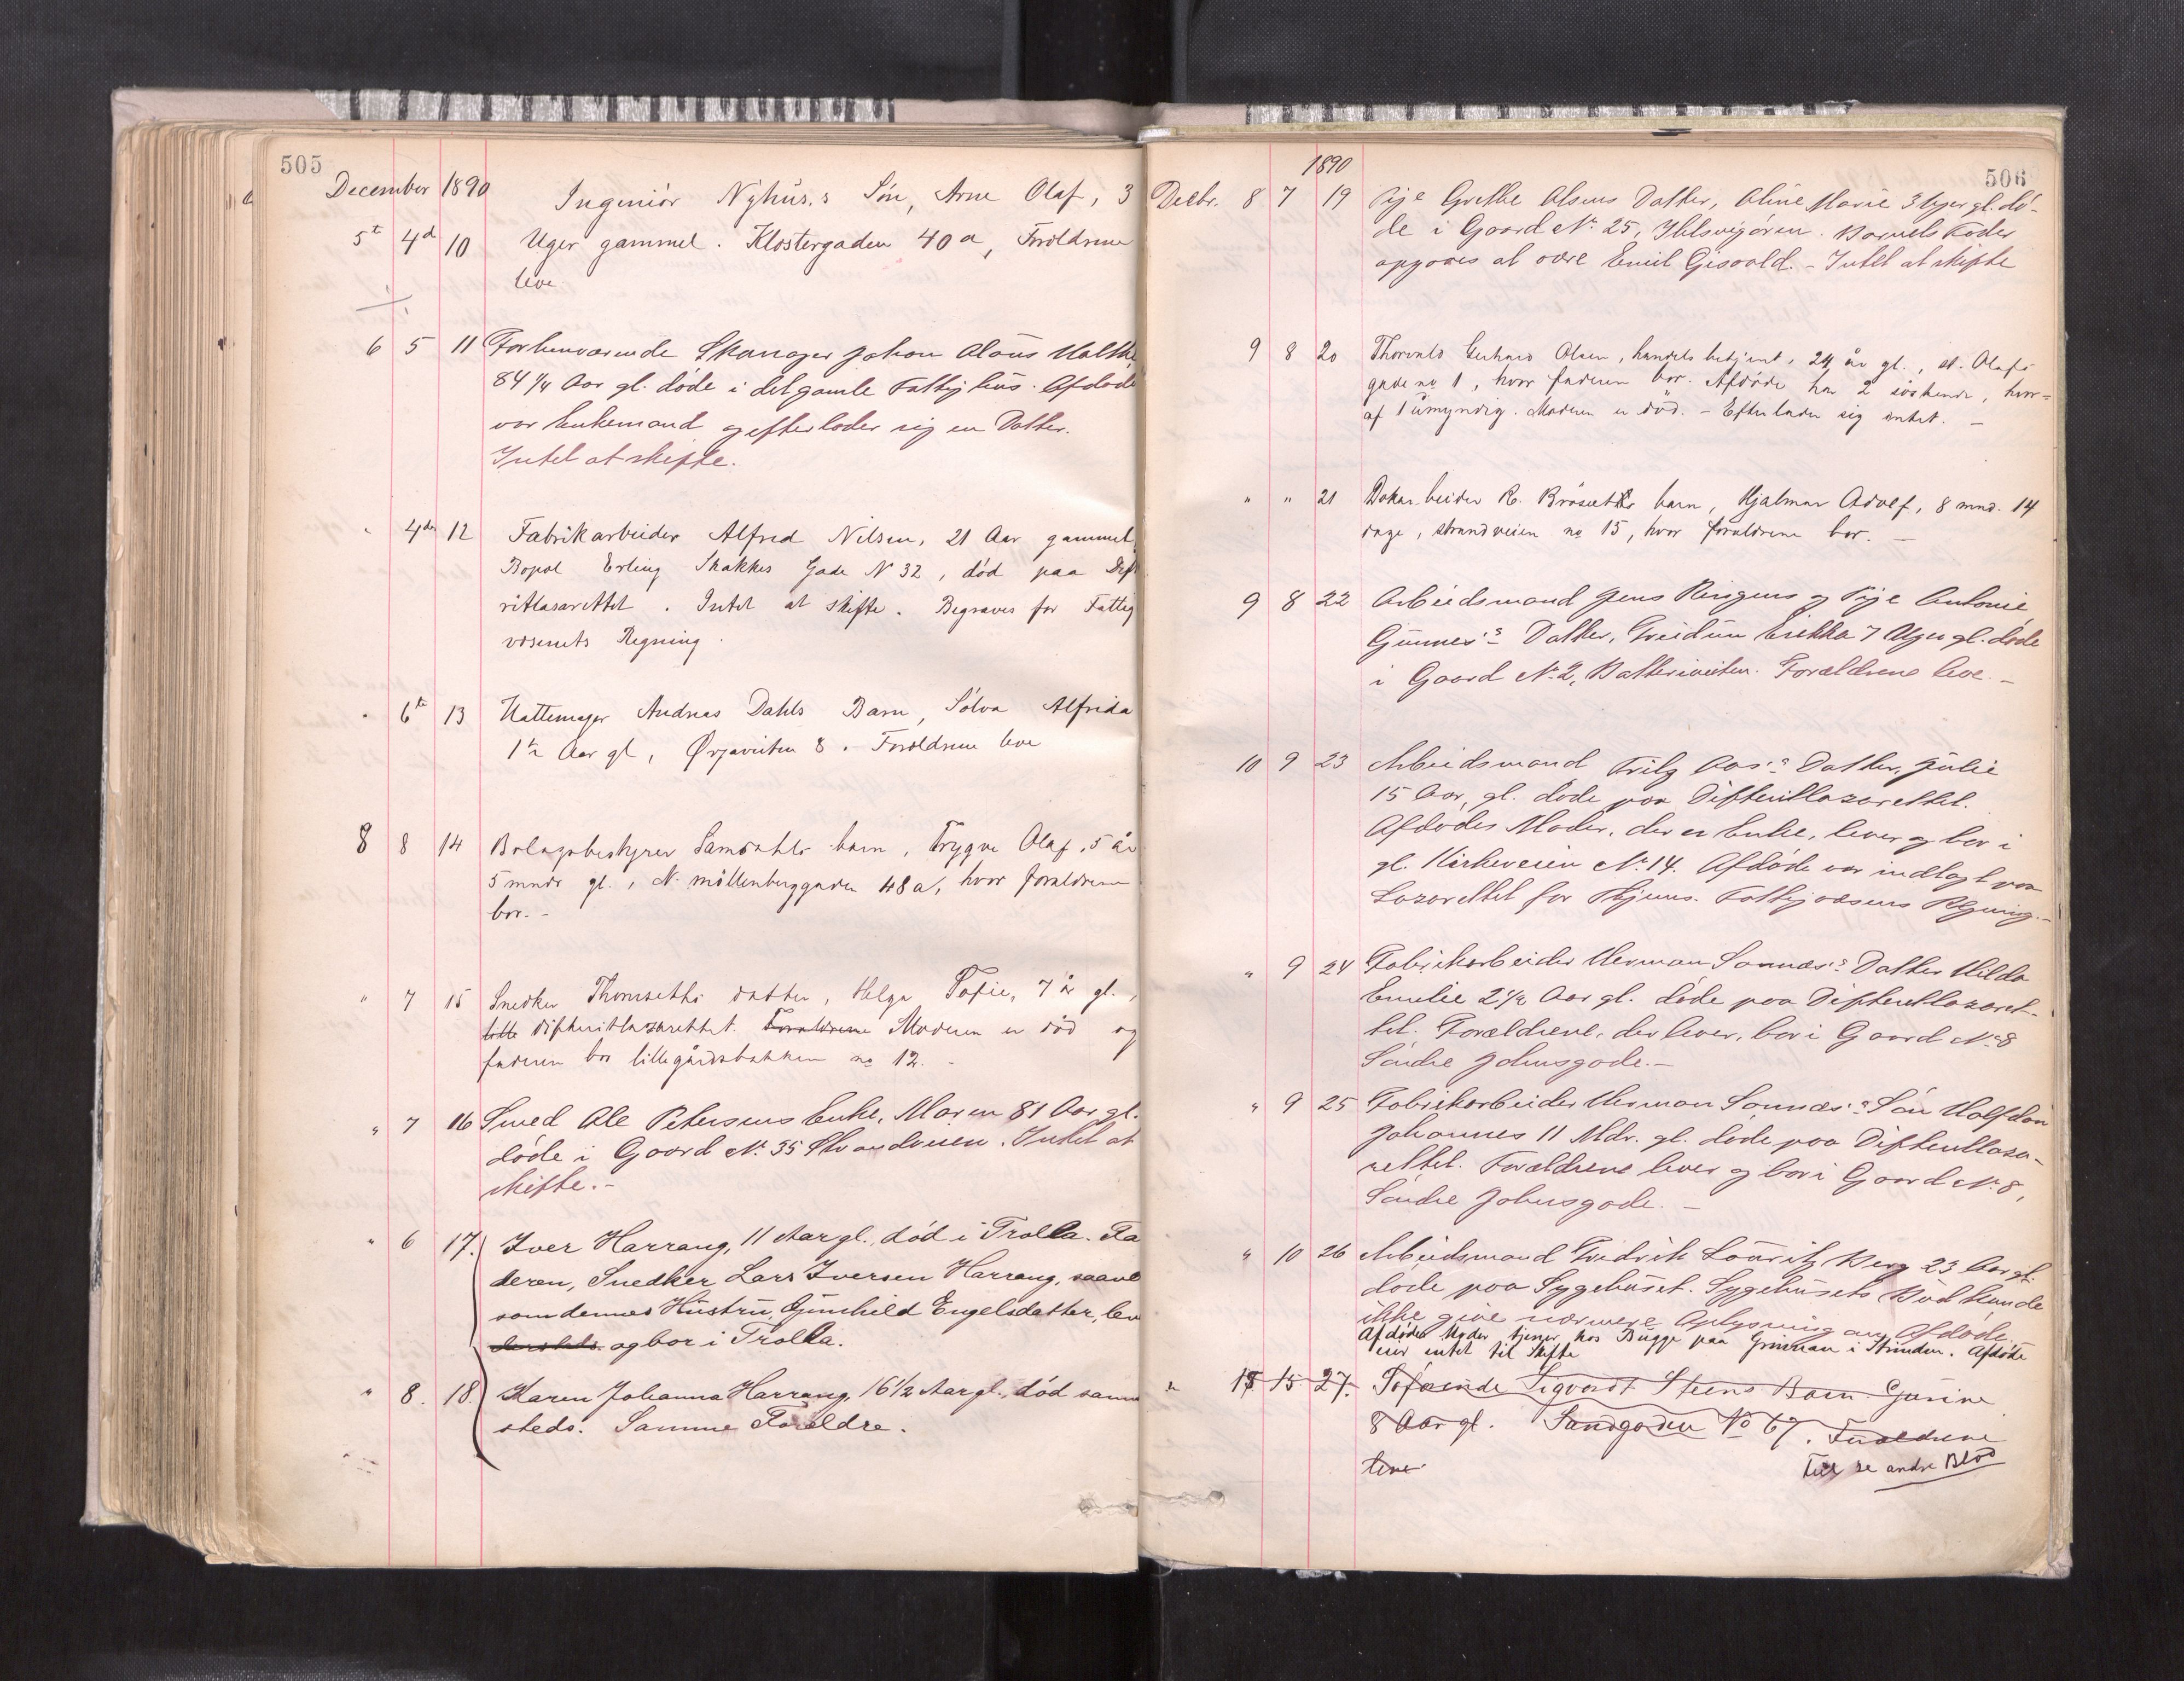 505
December 1890
Ingeniör Nyhus's Sön, Arne Olaf, 3
5t 4d 10 Uger gammel. Klostergaden 40a, Forældrene
leve
6 5 11 Forhenværende Skomager Johan Olaus
84 1/4 Aar gl. døde i det gamle Fattighus. Afdøde
var Enkemand og efterlader sig en Datter.
Intet at skifte.
" 4de 12 Fabrikarbeider Alfred Nilsen, 21 Aar gammel
Bopæl Erling Skakkes Gade N 32, död paa Dift
ritlasarettet. Intet at skifte. Begraves for Fattig
væsenets Regning.
" 6te 13 Hattemager Andreas Dahls Barn, Sölva Alfrida
Aar gl, Ørjaveiten 8. Forældrene leve
8 8 14 Bolagsbestyrer Samdahls barn, Trygve Olaf, 5 år
5 mndr gl., N. möllenberggaden 48a, hvor forældrene
bor. -
" 7 15 Snedker Thomseths datter, Helga Sofie, 7 år gl.,
difteritlazarettet. Forældrene Moderen er död og
faderen bor lillegårdsbakken no 12. -
" 7 16 Smed Ole Petersens Enke, Maren 81 Aar gl.
døde i Gaard No 35 Strandveien. Intet at
skifte. -
" 6 17. Iver Harrang, 11 Aar gl., död i Trolla. Fa
deren, Snedker Lars Iversen Harrang, saavel
som dennes Hustru, Gunhild Engelsdatter, lev
dersteds og bor i Trolla.
" 8. 18. Karen Johanna Harrang, 16 1/2 Aar gl., död samme
steds. Samme Forældre.
506
1890
Decbr. 8 7 19 Pige Grethe Olsens Datter, Oline Marie 3 Uger gl. dø-
de i Gaard No 25, Ihlsvigøren. Barnets Fader
opgives at være Emil Gisvold. - Intet at skifte
9 8 20 Thorvald Gerhard Olsen, handelsbetjent, 24 år gl., st. Olafs
gade no 1, hvor faderen bor. Afdöde har 2 söskende, hvor=
af 1 umyndig. Moderen er död. - Efterlader sig intet. -
" " 21 Dokarbeider R. Bröseths barn, Hjalmar Adolf, 8 mnd. 14
dage, strandveien no 15, hvor forældrene bor. -
9 8 22 Arbeidsmand Jens Ringens og Pige Antonie
Gunnes's Datter, Erikka 7 Uger gl. døde
i Gaard No 2, Batteriveiten. Forældrene leve. -
10 9 23 Arbeidsmand Fritz Aas's Datter, Julie
15 Aar, gl. døde paa Difteritlazarettet.
Afdødes Moder, der er Enke, lever og bor i
gl. Kirkeveien No 14. Afdøde var indlagt paa
Lazarettet for Thjems. Fattigvæsens Regning. -
" 9 24 Fabrikarbeider Herman Sannæs's Datter Hilda
Emilie 2 1/2 Aar gl. døde paa Difteritlazaret-
tet. Forældrene, der lever, bor i Gaard No 8
Søndre Johnsgade. -
" 9 25 Fabrikarbeider Herman Sannæs's Søn Halfdan
Johannes 11 Mdr. gl. døde paa Difteritlaza-
rettet. Forældrene lever og bor i Gaard No 8,
Søndre Johnsgade. -
" 10 26 Arbeidsmand Fredrik Lauritz Berg 23 Aar gl.
døde paa Sygehuset. Sygehusets Bud kunde
ikke give nærmere Oplysning om Afdøde.
Afdødes Moder tjener hos Bugge paa i Strinden. Afdøde
eier intet til Skifte
" 15 15 27. Söfarende Sigvardt Steens Barn Gusine
8 Aar gl. Sandgaden No 67. Forældrene
leve.
se andre Blad